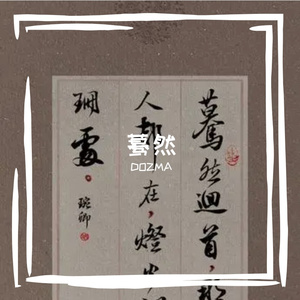 驀然迴首,
人卻在,燈火
珊處。
琬卿
驀然
DOZMA